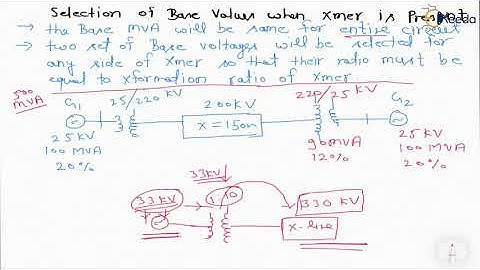 Selection of Base Values when Xmer is Present
→ the Base MVA will be same for entire circuit
→ two set of Base voltages will be selected for
any side of Xmer so that their ratio must be
equal to xformation ratio of xmer
500
MVA
G1
25/220 KV
200KV
220/25 KV
G2
X=150Ω
25KV
100 MVA
20%
90MVA
12%
25KV
100 MVA
20%
33KV
33KV
1:10
330 KV
X-line